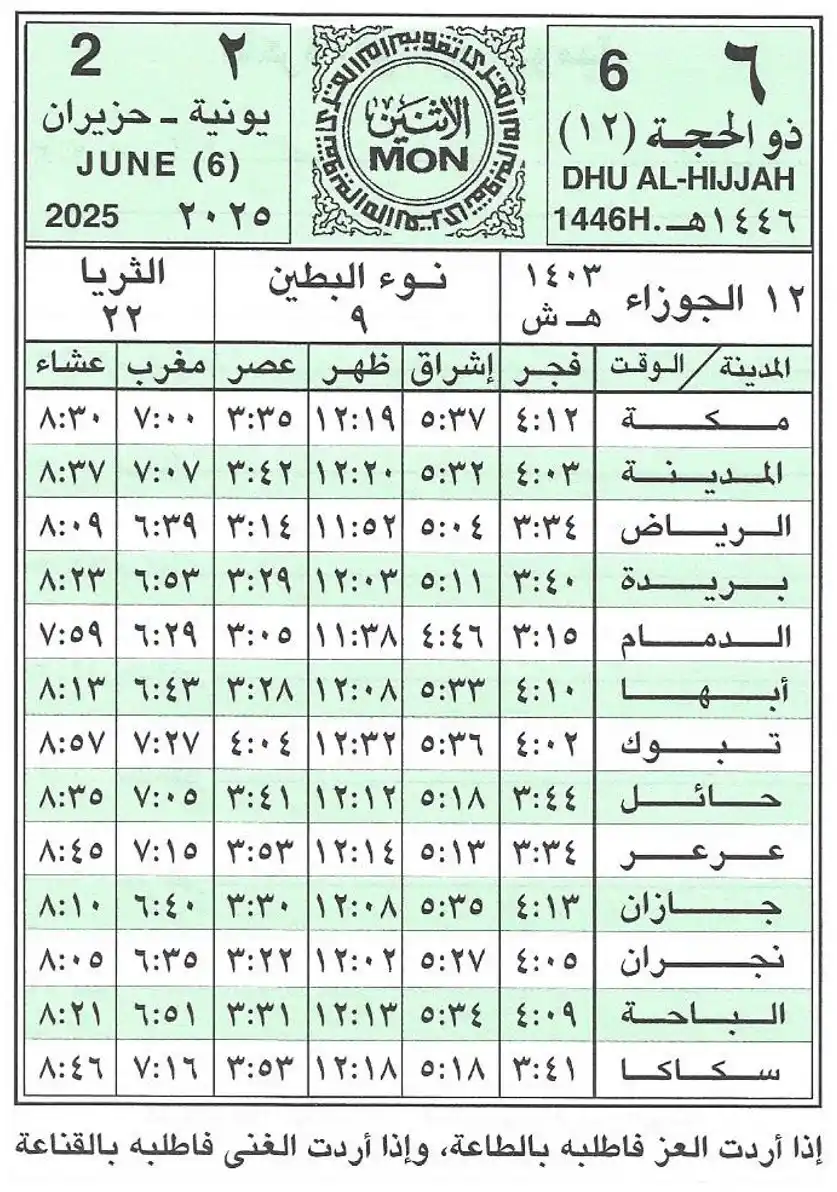 ٦ 6
ذو الحجة (١٢)
DHU AL-HIJJAH
١٤٤٦هـ 1446H.
الاثنين
MON
٢ 2
يونية - حزيران
JUNE (6)
٢٠٢٥ 2025
١٢ الجوزاء ١٤٠٣ هـ ش
نوء البطين ٩
الثريا ٢٢
المدينة / الوقت فجر إشراق ظهر عصر مغرب عشاء
مكة ٤:١٢ ٥:٣٧ ١٢:١٩ ٣:٣٥ ٧:٠٠ ٨:٣٠
المدينة ٤:٠٣ ٥:٣٢ ١٢:٢٠ ٣:٤٢ ٧:٠٧ ٨:٣٧
الرياض ٣:٣٤ ٥:٠٤ ١١:٥٢ ٣:١٤ ٦:٣٩ ٨:٠٩
بريدة ٣:٤٠ ٥:١١ ١٢:٠٣ ٣:٢٩ ٦:٥٣ ٨:٢٣
الدمام ٣:١٥ ٤:٤٦ ١١:٣٨ ٣:٠٥ ٦:٢٩ ٧:٥٩
أبها ٤:١٠ ٥:٣٣ ١٢:٠٨ ٣:٢٨ ٦:٤٣ ٨:١٣
تبوك ٤:٠٢ ٥:٣٦ ١٢:٣٢ ٤:٠٤ ٧:٢٧ ٨:٥٧
حائل ٣:٤٤ ٥:١٨ ١٢:١٢ ٣:٤١ ٧:٠٥ ٨:٣٥
عرعر ٣:٣٤ ٥:١٣ ١٢:١٤ ٣:٥٣ ٧:١٥ ٨:٤٥
جازان ٤:١٣ ٥:٣٥ ١٢:٠٨ ٣:٣٠ ٦:٤٠ ٨:١٠
نجران ٤:٠٥ ٥:٢٧ ١٢:٠٢ ٣:٢٢ ٦:٣٥ ٨:٠٥
الباحة ٤:٠٩ ٥:٣٤ ١٢:١٣ ٣:٣١ ٦:٥١ ٨:٢١
سكاكا ٣:٤١ ٥:١٨ ١٢:١٨ ٣:٥٣ ٧:١٦ ٨:٤٦
إذا أردت العز فاطلبه بالطاعة، وإذا أردت الغنى فاطلبه بالقناعة